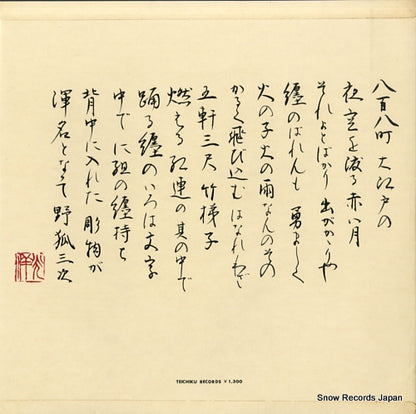 八百八町 大江戸の
夜空を渡る赤い月
それっとばかり 出がかりや
纏のばれんも 勇ましく
火の子火の雨なんのその
かるく飛び込む はなれわざ
五軒三尺 竹梯子
燃える紅蓮の 其の中で
踊る纏のいろは文字
中でに組の纏持ち
背中に入れた 彫物が
渾名となって 野狐三次
TEICHIKU RECORDS ¥1,500
Snow Records Japan